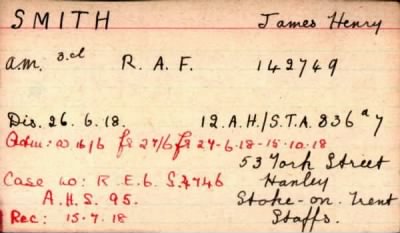 SMITH James Henry
a.m. 3.cl R. A. F. 142749
Dis. 26. 6. 18. 12. A.H./S.T.A. 836 a 7
Adm: 16/6 27/6 27-6-18-15-10-18
53 York Street
Case no: R.E.6. S.4746 Hanley
A.H.S. 95. Stoke-on-Trent
Rec: 15.7.18 Staffs.